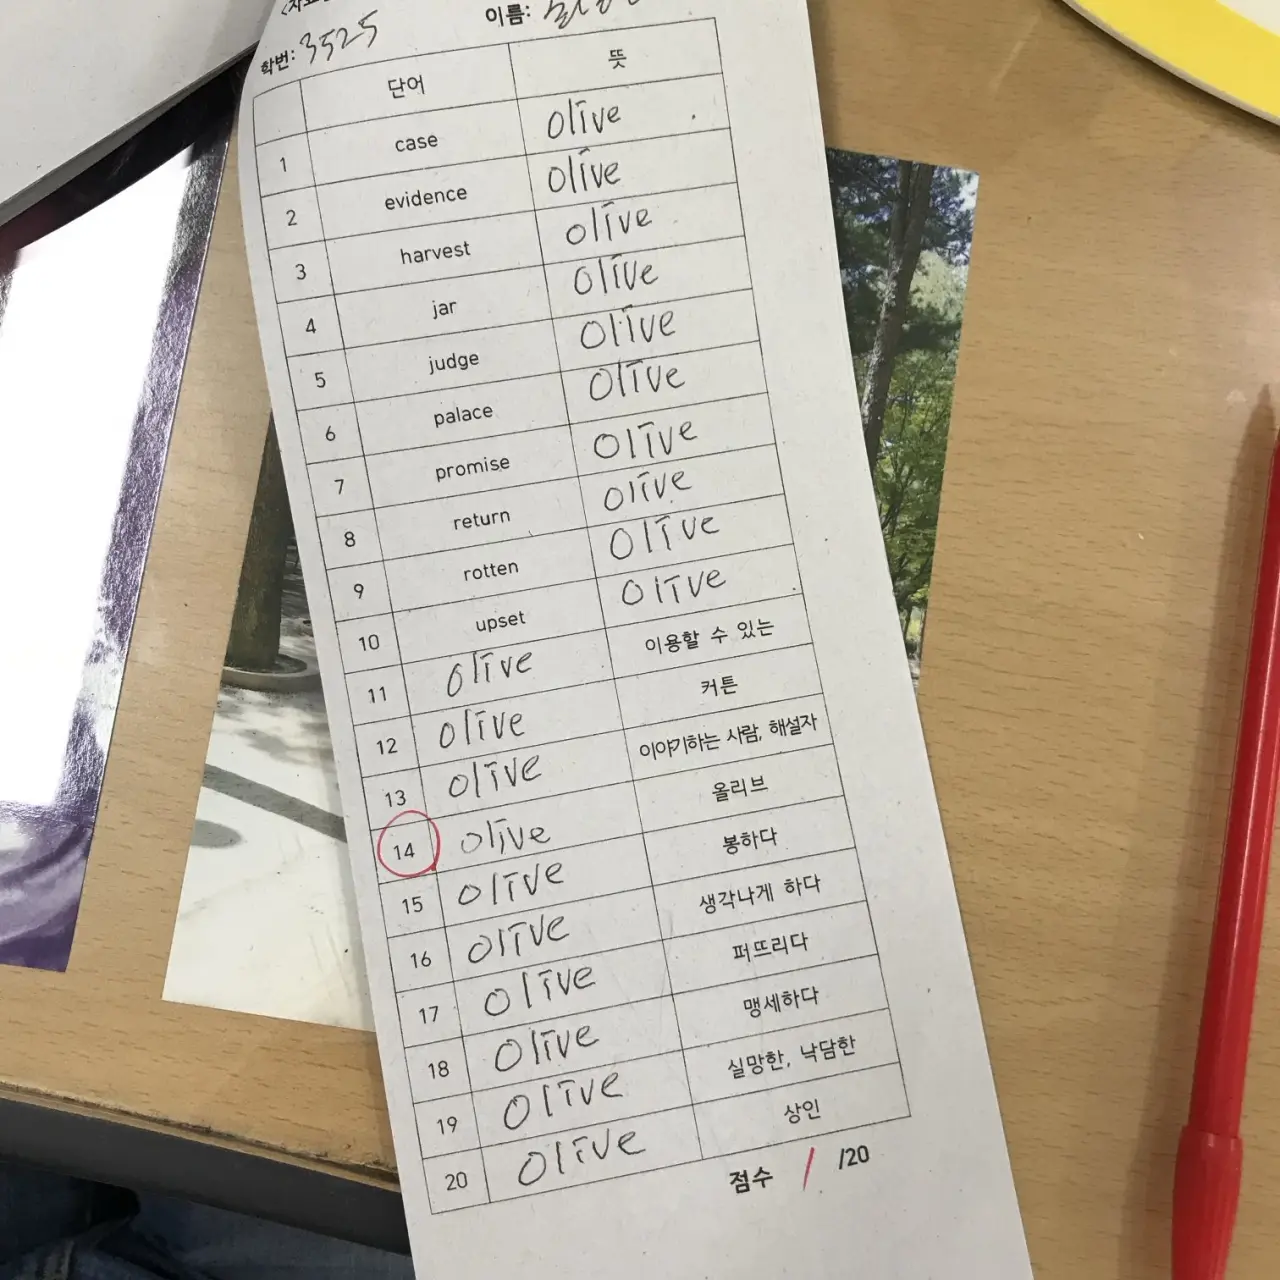 학번: 3525 이름:
단어 뜻
1 case olive
2 evidence olive
3 harvest olive
4 jar olive
5 judge olive
6 palace olive
7 promise olive
8 return olive
9 rotten olive
10 upset olive
11 olive 이용할 수 있는
12 olive 커튼
13 olive 이야기하는 사람, 해설자
14 olive 올리브
15 olive 봉하다
16 olive 생각나게 하다
17 olive 퍼뜨리다
18 olive 맹세하다
19 olive 실망한, 낙담한
20 olive 상인
점수 / /20